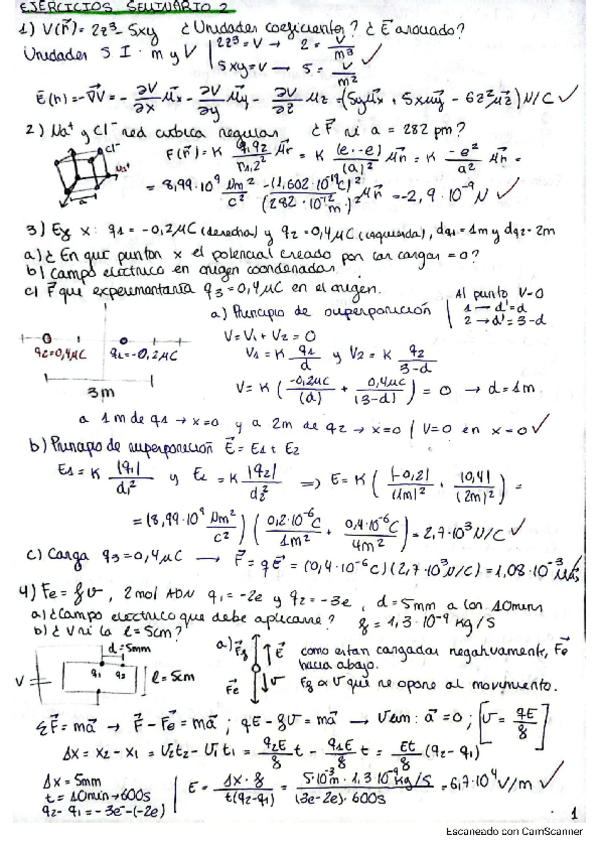 EJERCICIOS SEMINARIO 2
1) V(r⃗) = 2z³ - 5xy ¿Unidades coeficientes? ¿E⃗ asociado?
Unidades S I · m y V | 2z³ = V → 2 = V/m³ ✓
5xy = V → 5 = V/m²
E⃗(r) = -∇⃗V = - ∂V/∂x u⃗x - ∂V/∂y u⃗y - ∂V/∂z u⃗z = (5y u⃗x + 5x u⃗y - 6z² u⃗z) N/C ✓
2) Na⁺ y Cl⁻ red cubica regular ¿F⃗ si a = 282 pm?
Cl⁻
Na⁺
a
F(r⃗) = K q1·q2/r1,2² u⃗r = K (e·-e)/(a)² u⃗r = K -e²/a² u⃗r =
= 8,99·10⁹ Nm²/C² · -(1,602·10⁻¹⁹C)²/(282·10⁻¹²m)² u⃗r = -2,9·10⁻⁹ N ✓
3) Eje x: q1 = -0,2μC (derecha) y q2 = 0,4μC (izquierda), dq1 = 1m y dq2 = 2m
a) ¿En que puntos x el potencial creado por las cargas = 0?
b) Campo eléctrico en origen coordenadas
c) F⃗ que experimentaría q3 = 0,4μC en el origen.
a) Principio de superposición | Al punto V=0
1 → d' = d
2 → d' = 3-d
V = V1 + V2 = 0
q2=0,4μC q1=-0,2μC
V1 = K q1/d y V2 = K q2/3-d
3m
V = K (-0,2μC/(d) + 0,4μC/(3-d)) = 0 → d = 1m
a 1m de q1 → x=0 y a 2m de q2 → x=0 / V=0 en x=0 ✓
b) Principio de superposición E⃗ = E1 + E2
E1 = K |q1|/d1² y E2 = K |q2|/d2² ⟹ E = K (|-0,2|/(1m)² + |0,4|/(2m)²) =
= (8,99·10⁹ Nm²/C²) (0,2·10⁻⁶C/1m² + 0,4·10⁻⁶C/4m²) = 2,7·10³ N/C ✓
c) Carga q3 = 0,4μC → F⃗ = qE⃗ = (0,4·10⁻⁶C)(2,7·10³N/C) = 1,08·10⁻³
4) Fe = gv, 2 mol ADN q1 = -2e y q2 = -3e, d = 5mm a los 10mins
a) ¿Campo eléctrico que debe aplicarse? g = 1,3·10⁻⁹ kg/s
b) ¿V si la l = 5cm?
d=5mm
V
q1 q2
l = 5cm
a) F⃗g E⃗
F⃗e v⃗
como estan cargadas negativamente, F⃗e
hacia abajo.
Fg α v⃗ que se opone al movimiento.
ΣF⃗ = ma⃗ → F⃗ - F⃗e = ma⃗ ; qE - gv = ma⃗ → v⃗ lim: a⃗ = 0 ; [v = qE/g]
Δx = x2 - x1 = v2t2 - v1t1 = q2E/g t - q1E/g t = Et/g (q2 - q1)
Δx = 5mm
t = 10min → 600s
q2 - q1 = -3e - (-2e)
E = Δx·g/t(q2-q1) = 5·10⁻³m · 1,3·10⁻⁹kg/s/(3e-2e)·600s = 6,7·10⁴ V/m ✓
1
Escaneado con CamScanner